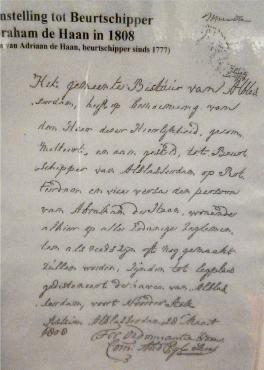 nstelling tot Beurtschipper
braham de Haan in 1808
n van Adriaan de Haan, beurtschipper sinds 1777)
Het gemeente Bestuur van Alblas
serdam, heeft op benoeming van
den Heer dezer Heerlijkheid, gecom
mitteert, en aan gesteld, tot Beurt
Schipper van Alblasserdam op Rot
terdam en vice versa den persoon
van Abraham de Haan, woonende
alhier op alle zodanige Reglemen
ten als reeds zijn of nog gemaakt
zullen worden, zijnde tot
de haven van Alblas
serdam, voort
Actum Alblasserdam 28 Maart
1808
Ter Ordonnantie van